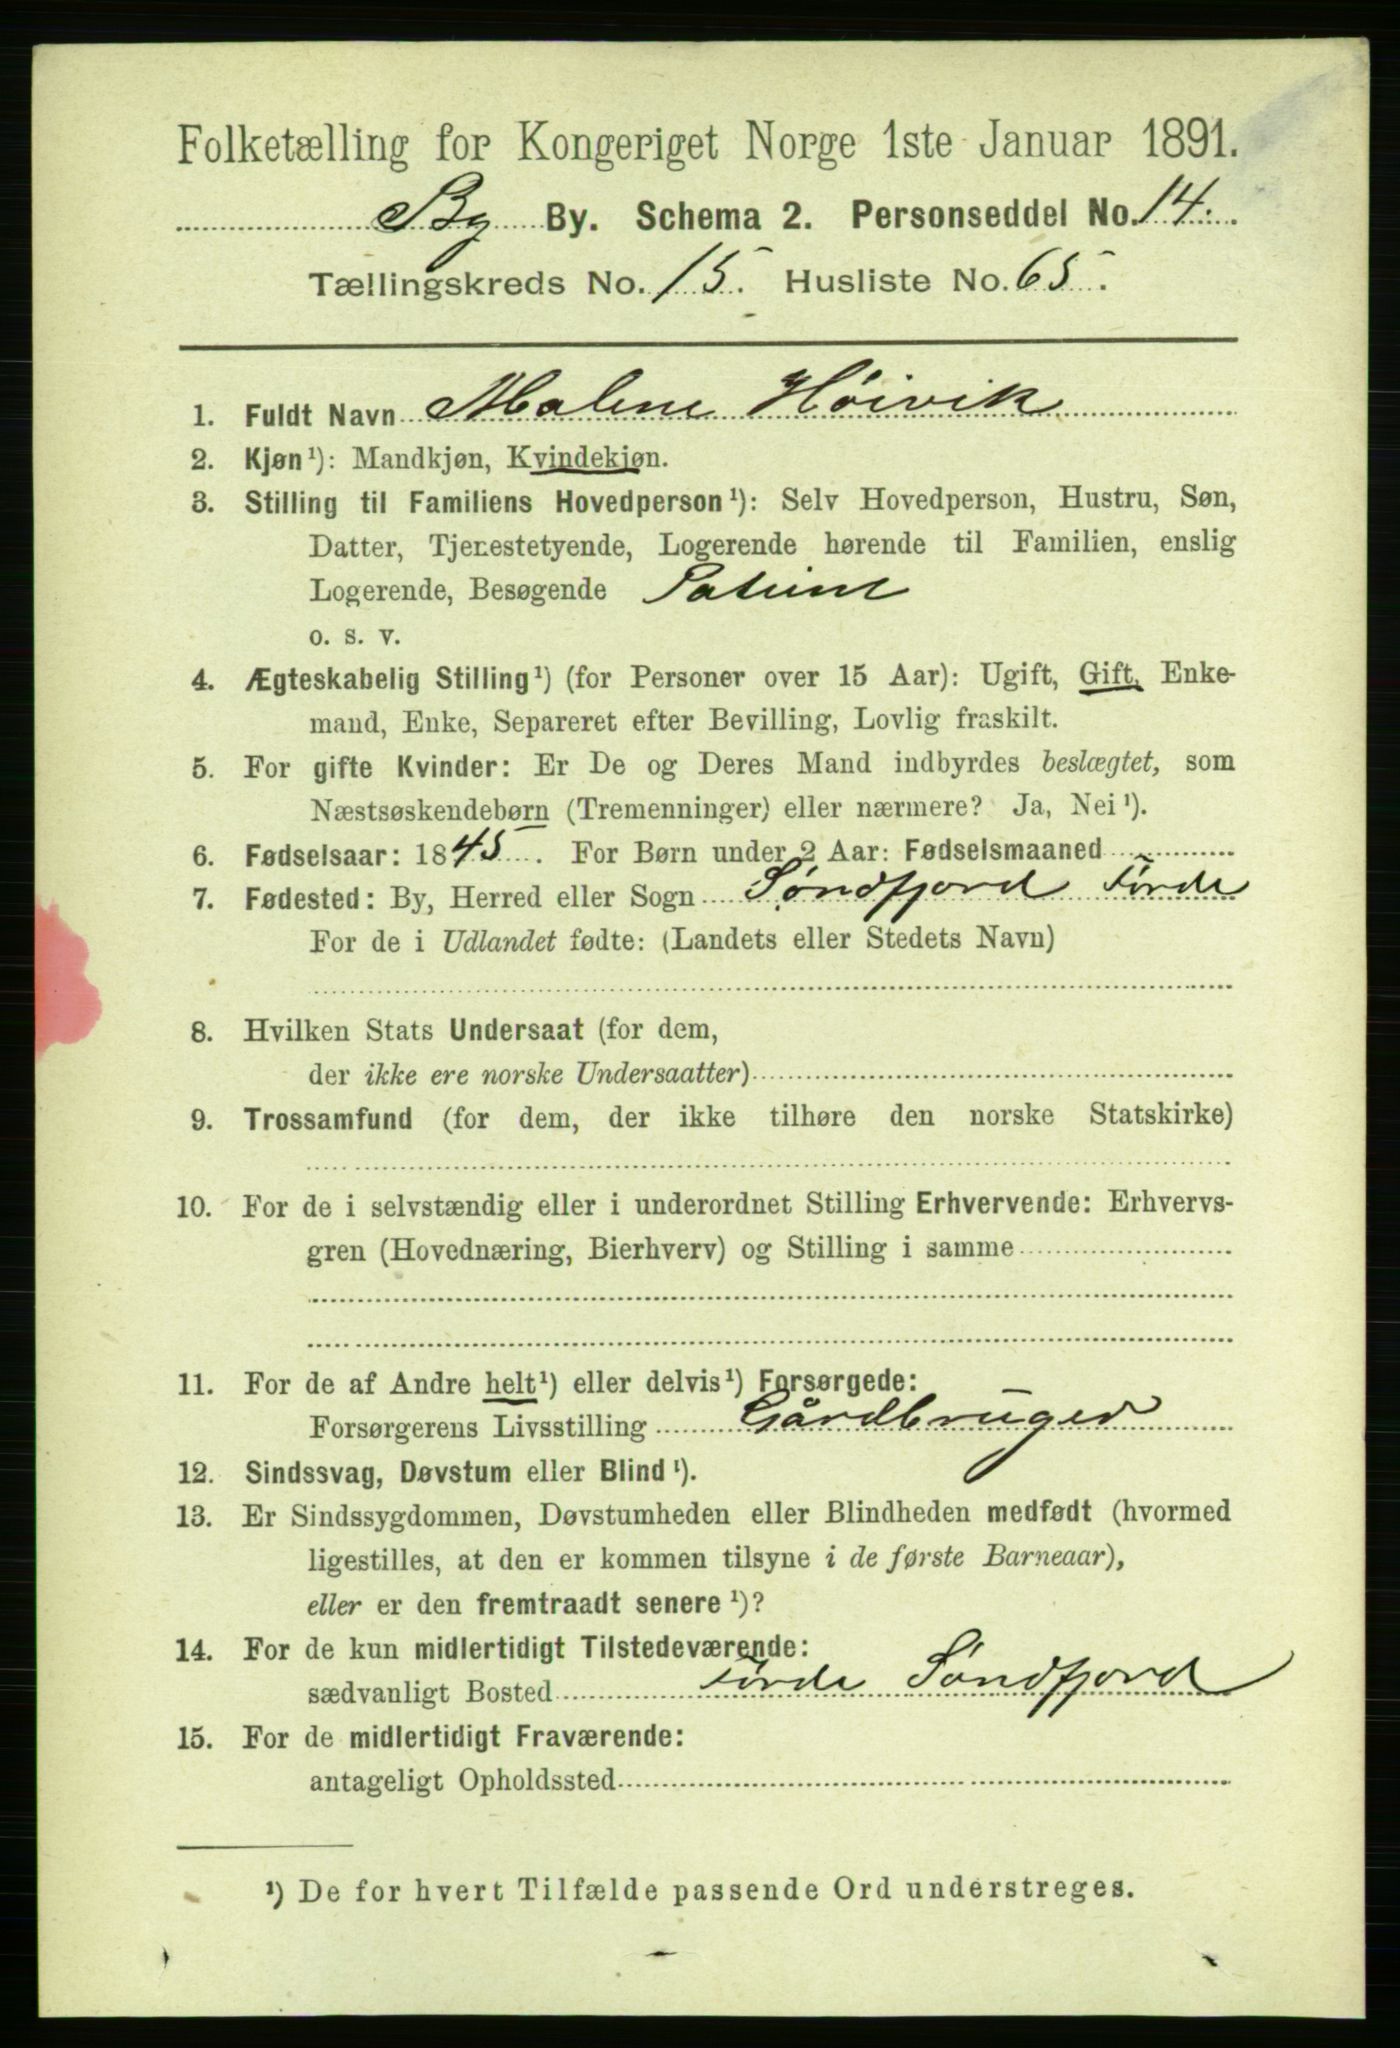 Folketælling for Kongeriget Norge 1ste Januar 1891.
By By. Schema 2. Personseddel No. 14.
Tællingskreds No. 15. Husliste No. 65.
1. Fuldt Navn Malene Høivik
2. Kjøn¹): Mandkjøn, Kvindekjøn.
3. Stilling til Familiens Hovedperson¹): Selv Hovedperson, Hustru, Søn,
Datter, Tjenestetyende, Logerende hørende til Familien, enslig
Logerende, Besøgende Patient
o. s. v.
4. Ægteskabelig Stilling¹) (for Personer over 15 Aar): Ugift, Gift, Enke-
mand, Enke, Separeret efter Bevilling, Lovlig fraskilt.
5. For gifte Kvinder: Er De og Deres Mand indbyrdes beslægtet, som
Næstsøskendebørn (Tremenninger) eller nærmere? Ja, Nei¹).
6. Fødselsaar: 1845. For Børn under 2 Aar: Fødselsmaaned
7. Fødested: By, Herred eller Sogn Søndfjord Førde
For de i Udlandet fødte: (Landets eller Stedets Navn)
8. Hvilken Stats Undersaat (for dem,
der ikke ere norske Undersaatter)
9. Trossamfund (for dem, der ikke tilhøre den norske Statskirke)
10. For de i selvstændig eller i underordnet Stilling Erhvervende: Erhvervs-
gren (Hovednæring, Bierhverv) og Stilling i samme
11. For de af Andre helt¹) eller delvis¹) Forsørgede:
Forsørgerens Livsstilling Gårdbruger
12. Sindssvag, Døvstum eller Blind¹).
13. Er Sindssygdommen, Døvstumheden eller Blindheden medfødt (hvormed
ligestilles, at den er kommen tilsyne i de første Barneaar),
eller er den fremtraadt senere¹)?
14. For de kun midlertidigt Tilstedeværende:
sædvanligt Bosted Førde Søndfjord
15. For de midlertidigt Fraværende:
antageligt Opholdssted
¹) De for hvert Tilfælde passende Ord understreges.